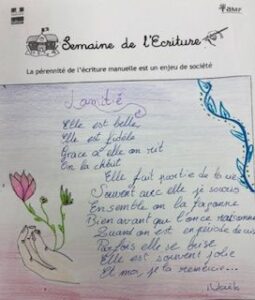 Semaine de l'Ecriture
La pérennité de l'écriture manuelle est un enjeu de société
L'amitié
Elle est belle
Elle est fidèle
Grâce à elle on rit
On la chérit
Elle fait partie de la vie
Souvent avec elle je souris
Ensemble on la
Bien avant que l'once
Quand on est en période de
Parfois elle se brise
Elle est souvent jolie
Et moi, je la remercie...